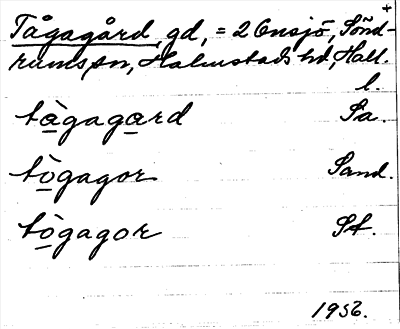 +
Tågagård, gd, = 2 Onsjö, Sönd-
rums sn, Halmstads hd, Hall.
l.
tàgagard Sa.
tògagor Sand.
tògagor St.
1956.